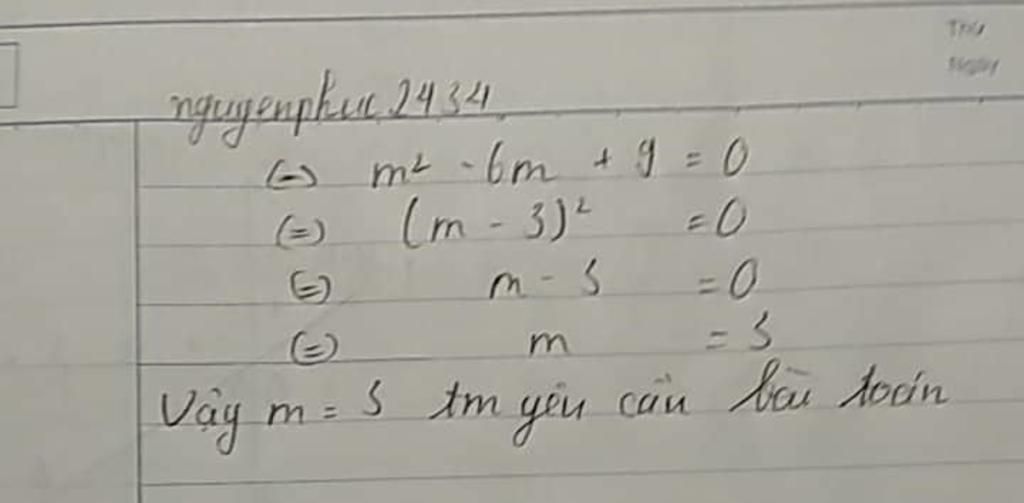 Thứ
Ngày
nguyenphuc2434
(=) m² - 6m + 9 = 0
(=) (m - 3)² = 0
(=) m - 3 = 0
(=) m = 3
Vậy m = 3 tm yêu cầu bài toán